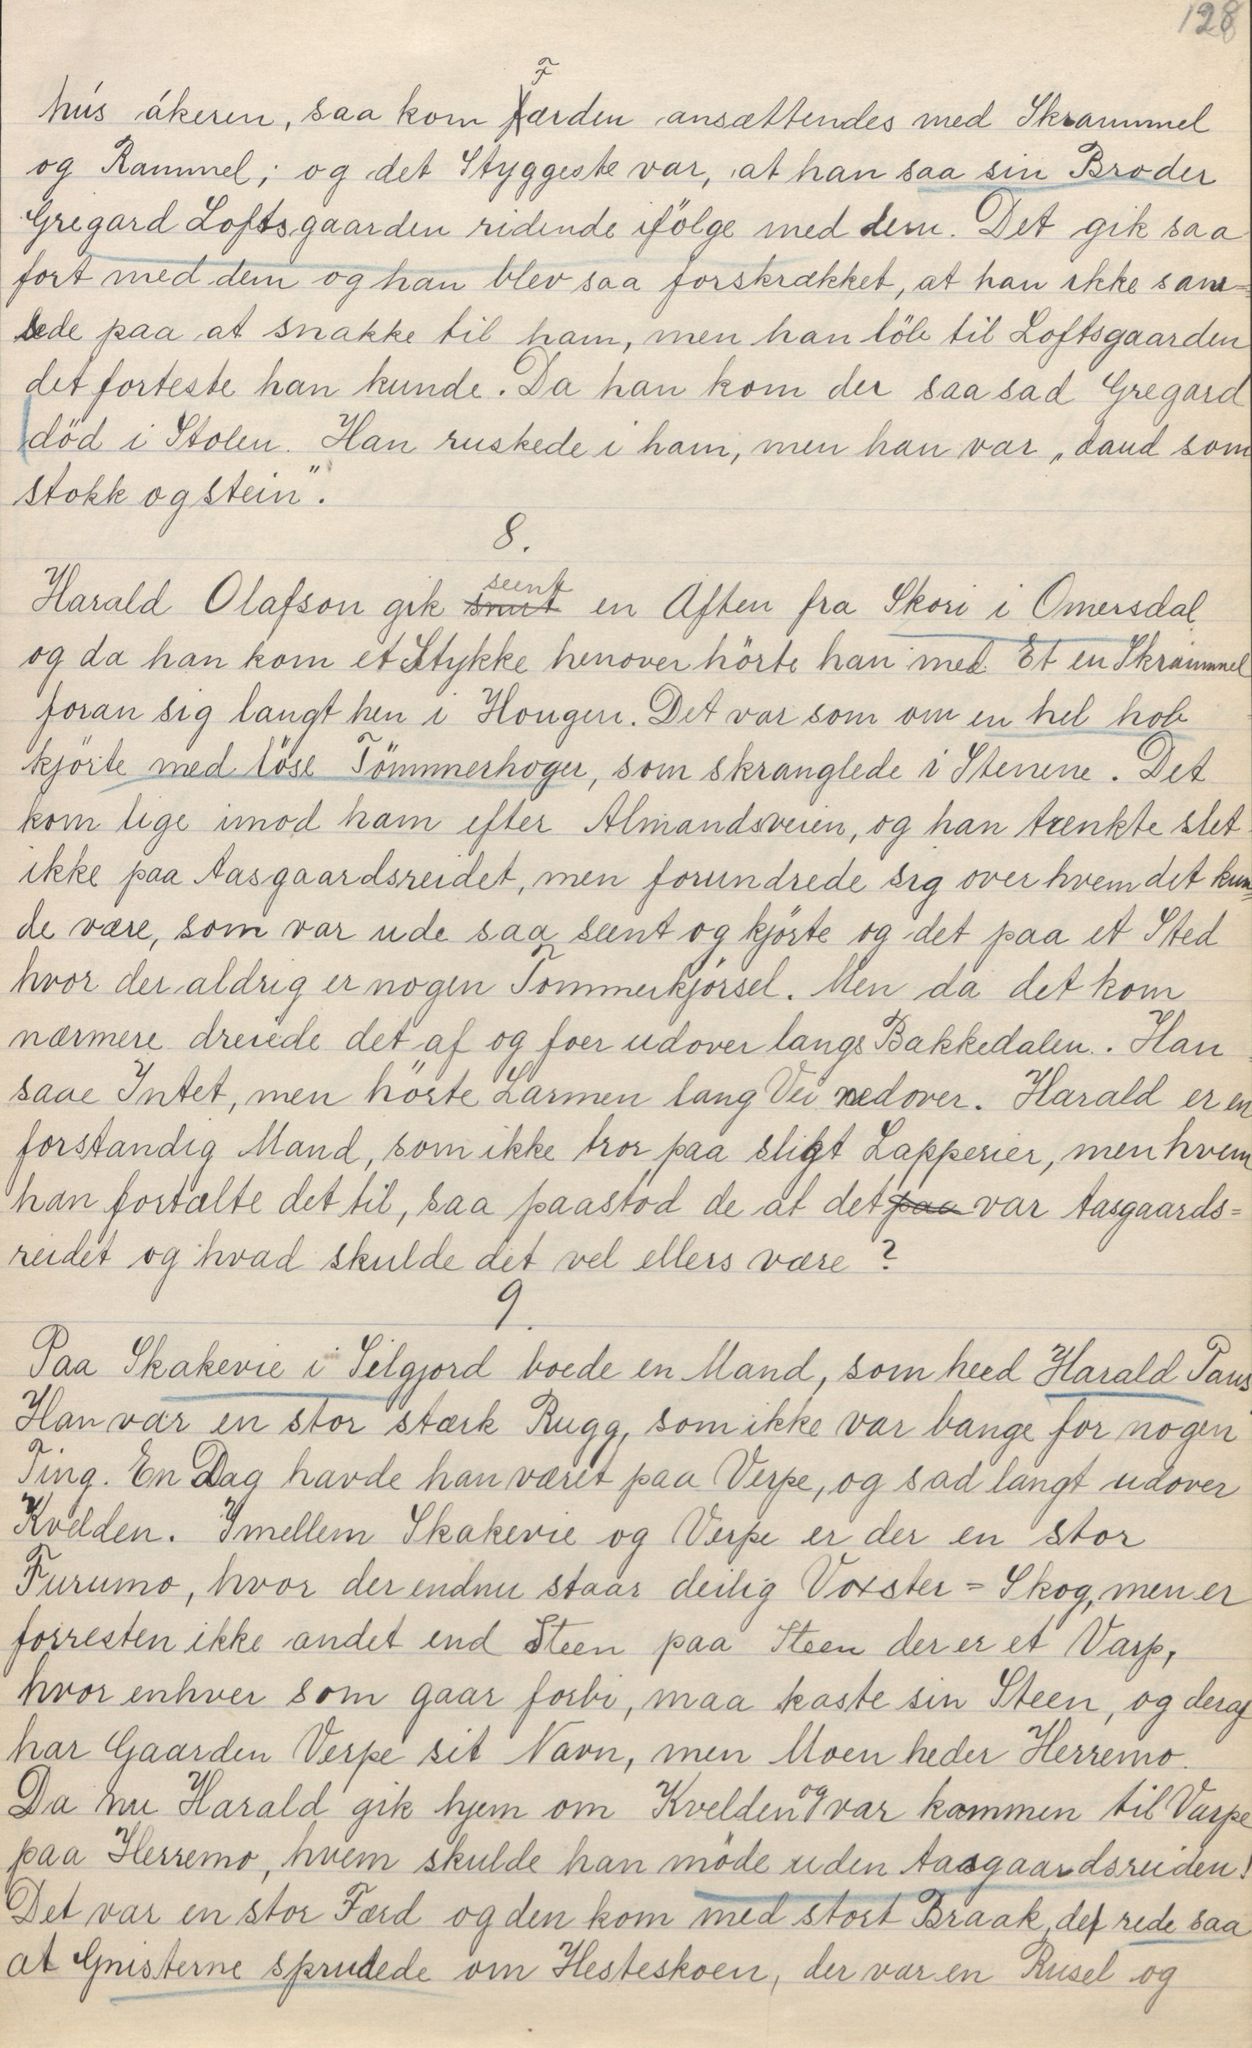 128
hús ákeren, saa kom Færden ansættendes med Skrammel
og Rammel; og det Styggeste var, at han saa sin Broder
Gregard Loftsgaarden ridende ifölge med dem. Det gik saa
fort med dem og han blev saa forskrækket, at han ikke san-
sede paa at snakke til ham, men han löb til Loftsgaarden
det forteste han kunde. Da han kom der saa sad Gregard
död i Stolen. Han ruskede i ham, men han var „daud som
stokk og stein".
8.
Harald Olafson gik seent en Aften fra Skori i Omersdal
og da han kom et Stykke henover hörte han med Et en Skrammel
foran sig langt hen i Hougen. Det var som om en hel hob
kjörte med löse Tömmmerhoger, som skranglede i Stenene. Det
kom lige imod ham efter Almandsveien, og han trenkte slet
ikke paa Aasgaardsreidet, men forundrede sig over hvem det kun=
de være, som var ude saa seent og kjörte og det paa et Sted
hvor der aldrig er nogen Tömmerkjörsel. Men da det kom
nærmere dreiede det af og foer udover langs Bakkedalen. Han
saae Intet, men hörte Larmen lang Vei nedover. Harald er en
forstandig Mand, som ikke tror paa sligt Lapperier, men hvem
han fortalte det til, saa paastod de at det paa var Aasgaards=
reidet og hvad skulde det vel ellers være?
9.
Paa Skakevie i Silgjord boede en Mand, som heed Harald Paus
Han var en stor stærk Rugg, som ikke var bange for nogen
Ting. En Dag havde han været paa Verpe, og sad langt udover
Kvelden. Imellem Skakevie og Verpe er der en stor
Furumo, hvor der endnu staar deilig Voxster=Skog, men er
forresten ikke andet end Steen paa Steen der er et Varp,
hvor enhver som gaar forbi, maa kaste sin Steen, og deraf
har Gaarden Verpe sit Navn, men Moen heder Herremo.
Da nu Harald gik hjem om Kvelden og var kommen til Varpe
paa Herremo, hvem skulde han möde uden Aasgaardsreiden!
Det var en stor Færd og den kom med stort Braak, det rede saa
at Gnisterne sprudede om Hesteskoen, der var en Rusel og